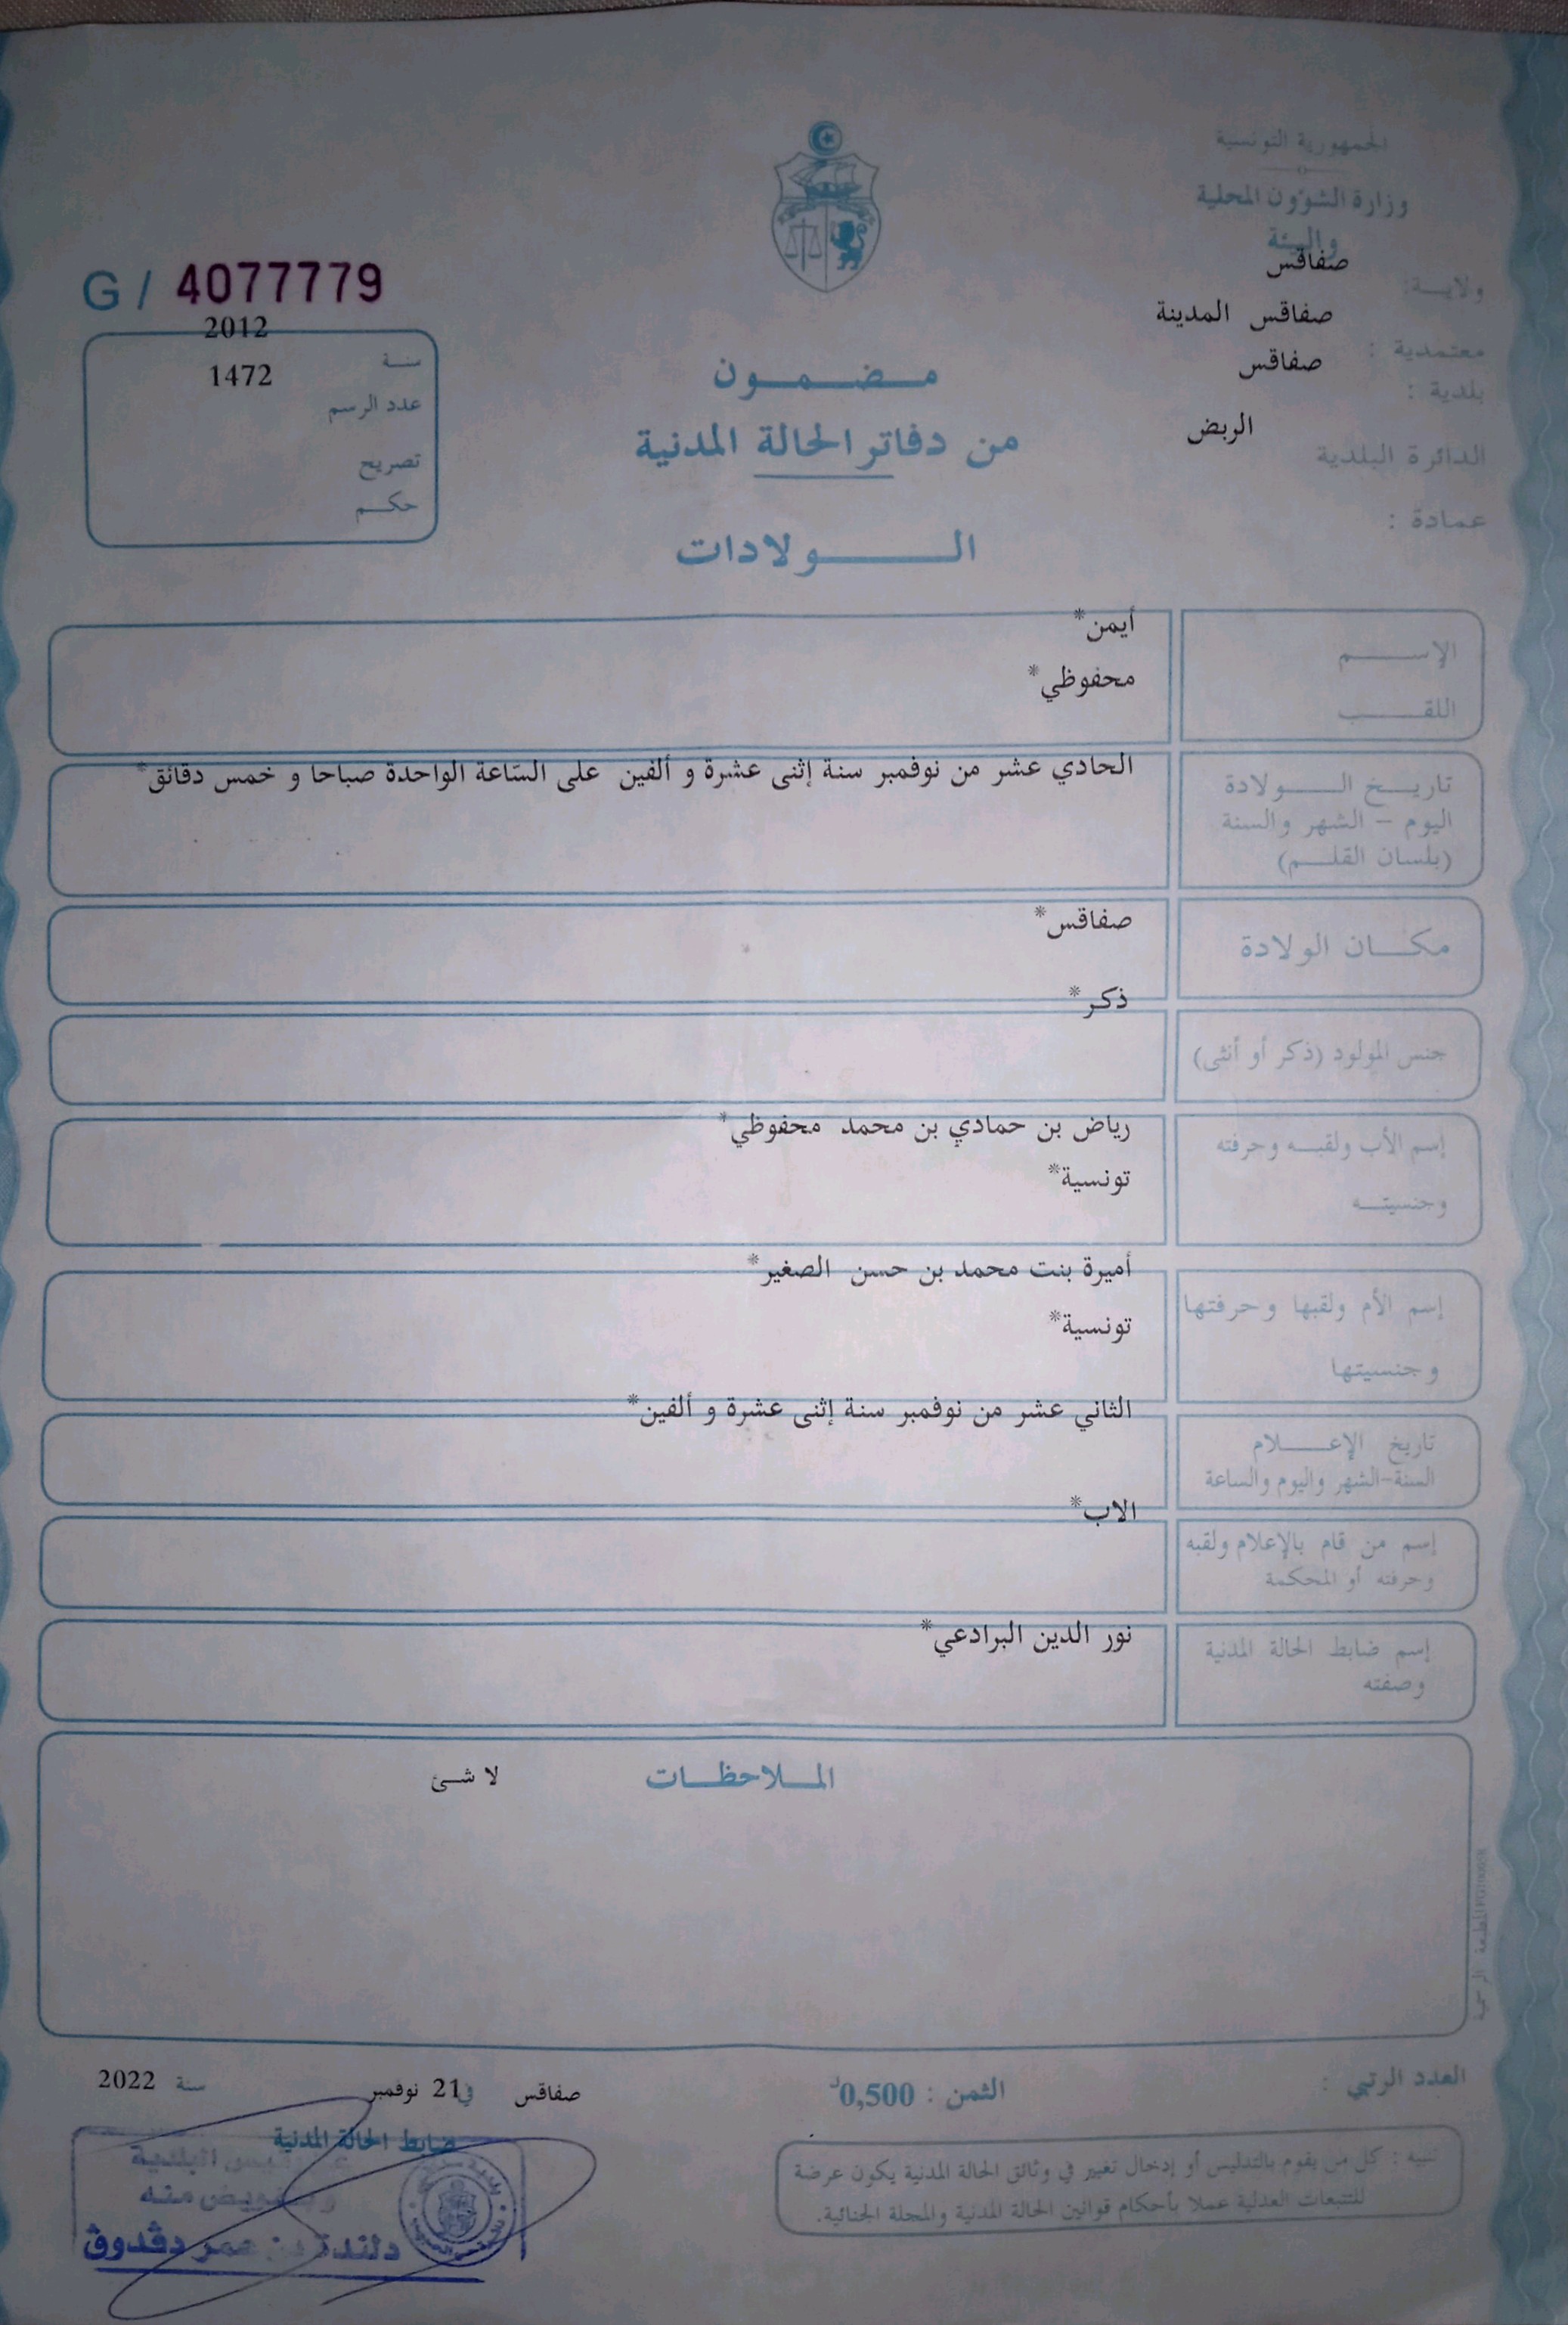 الجمهورية التونسية
وزارة الشؤون المحلية
والبيئة
ولاية: صفاقس
معتمدية : صفاقس المدينة
بلدية : صفاقس
الدائرة البلدية الربض
عمادة :
G / 4077779
سنة 2012
عدد الرسم 1472
تصريح
حكم
مضمون
من دفاتر الحالة المدنية
الولادات
الإسم أيمن*
اللقب محفوظي*
تاريخ الولادة الحادي عشر من نوفمبر سنة إثنى عشرة و ألفين على السّاعة الواحدة صباحا و خمس دقائق*
اليوم - الشهر والسنة
(بلسان القلم)
مكان الولادة صفاقس*
جنس المولود (ذكر أو أنثى) ذكر*
إسم الأب ولقبه وحرفته رياض بن حمادي بن محمد محفوظي*
وجنسيته تونسية*
إسم الأم ولقبها وحرفتها أميرة بنت محمد بن حسن الصغير*
وجنسيتها تونسية*
تاريخ الإعلام الثاني عشر من نوفمبر سنة إثنى عشرة و ألفين*
السنة-الشهر واليوم والساعة
إسم من قام بالإعلام ولقبه الاب*
وحرفته أو المحكمة
إسم ضابط الحالة المدنية نور الدين البرادعي*
وصفته
الملاحظات لا شئ
المطبعة الرسمية
العدد الرتبي :
الثمن : 0,500د
صفاقس في 21 نوفمبر سنة 2022
ضابط الحالة المدنية
تنبيه : كل من يقوم بالتدليس أو إدخال تغيير في وثائق الحالة المدنية يكون عرضة
للتتبعات العدلية عملا بأحكام قوانين الحالة المدنية والمجلة الجنائية.
عن رئيس البلدية
وبتفويض منه
دلندة بن عمر دقدوق